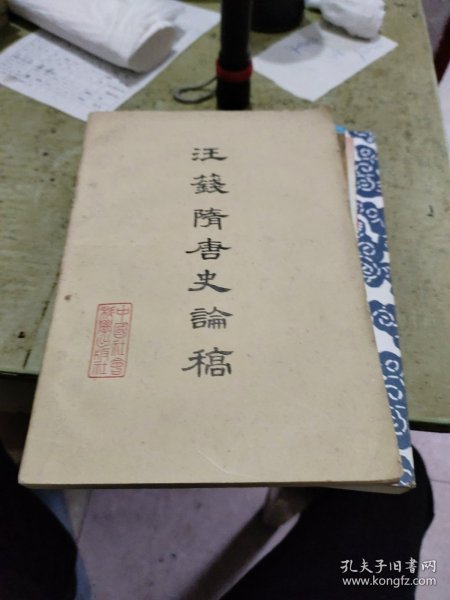 汪籛隋唐史論稿
中國社會
科學出版社
孔夫子旧书网
www.kongfz.com